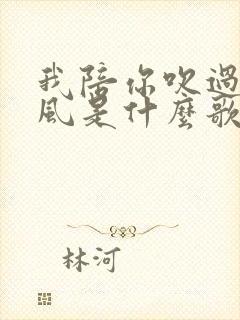 我陪你吹過
風是什麼歌
林河